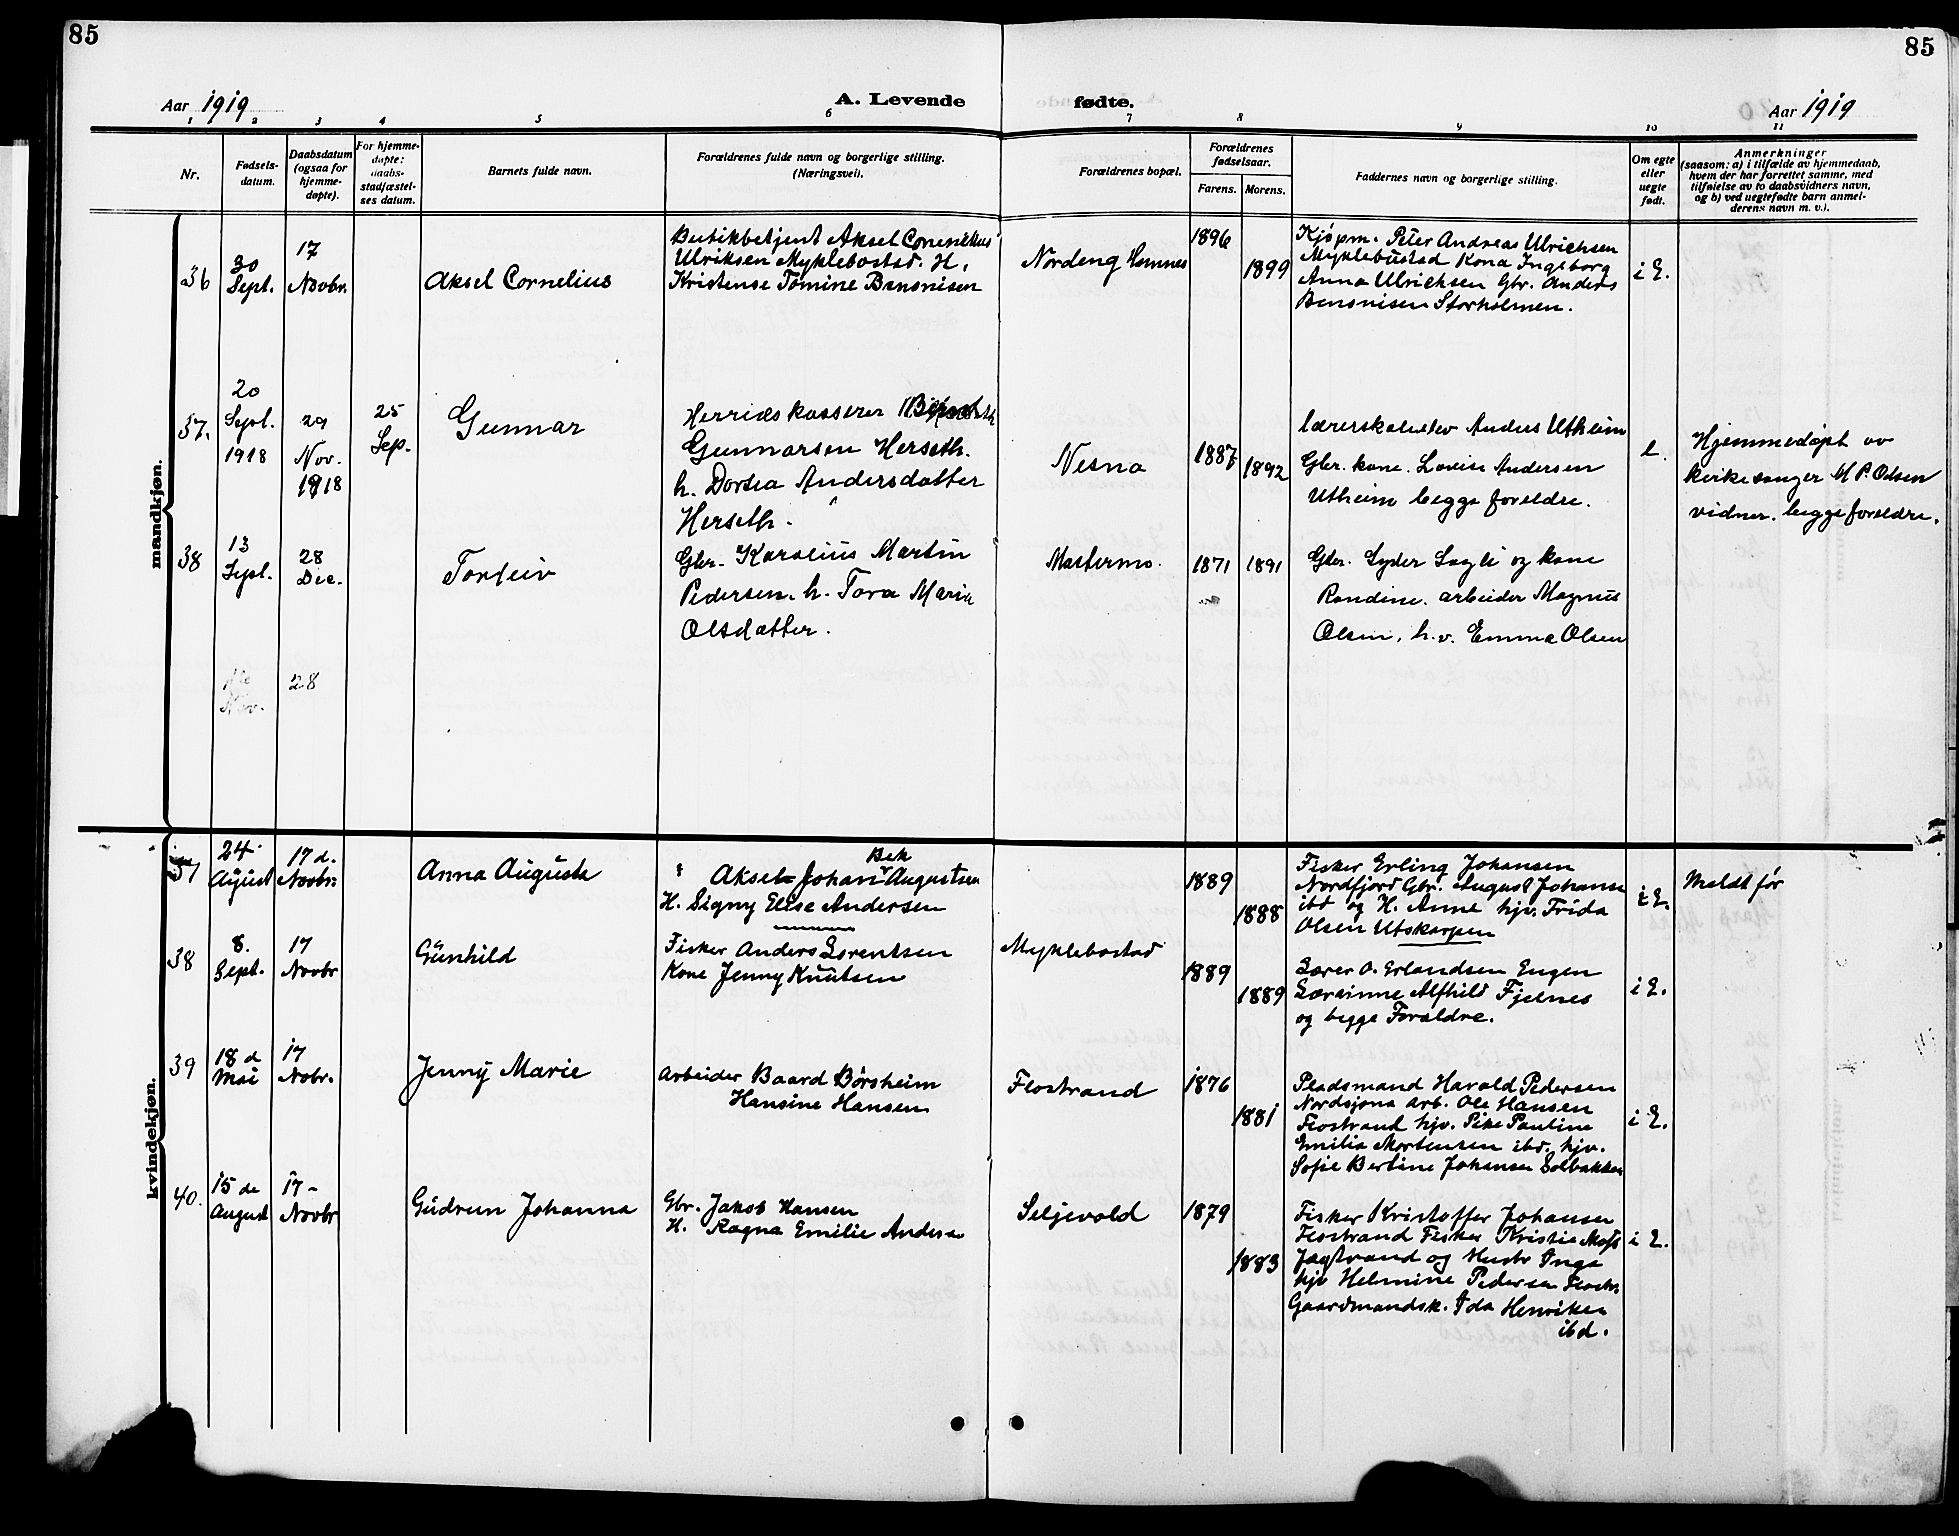 85
85
Aar 1919
A. Levende
fødte.
Aar 1919
1 2 3 4 5 6 7 8 9 10 11
Nr.
Fødsels-
datum.
Daabsdatum
(ogsaa for
hjemme-
døpte).
For hjemme-
døpte:
daabs-
stadfæstel-
ses datum.
Barnets fulde navn.
Forældrenes fulde navn og borgerlige stilling.
(Næringsvei).
Forældrenes bopæl.
Forældrenes
fødselsaar.
Farens. Morens.
Faddernes navn og borgerlige stilling.
Om egte
eller
uegte
født.
Anmerkninger
(saasom: a) i tilfælde av hjemmedaab,
hvem der har forrettet samme, med
tilføielse av to daabsvidners navn,
og b) ved uegtefødte barn anmel-
derens navn m. v.).
mandkjøn.
36
30
Sept.
17
Novbr.
Aksel Cornelius
Butikbetjent Aksel Cornelius
Ulriksen Myklebostad. H.
Kristense Tomine
Nordeng
1896
1899
Kjøpm. Peter Andreas Ulrichsen
Myklebustad Kona Ingeborg
Anna Ulrichsen Gbr. Anders
Storholmen.
i E.
37.
20
Sept.
1918
29
Nov.
1918
25
Sep.
Gunnar
Herredskasserer
Gunnarsen Herseth.
h. Dortea Andersdatter
Herseth.
Nesna
1887
1892
lærerskoleelev Anders Utheim
Gbr. kone. Lovise Andersen
Utheim begge foreldre.
e.
Hjemmedøpt av
kirkesanger M P. Olsen
vidner. begge foreldre.
38
13
Sept.
28
Dec.
Torleiv
Gbr. Karolius Martin
Pedersen. h. Tora Marie
Olsdatter.
Mastermo.
1871
1891
Gbr. Syder og kone
Randine. arbeider Magnus
Olsen, h.v. Emma Olsen
Nov.
28
kvindekjøn.
37
24
August
17 d.
Novbr.
Anna Augusta
Bek
Aksel Johan Augustsen
H. Signy Elise Andersen
1889
1888
Fisker Erling Johansen
Nordfjord Gbr. August Johanse
ibd og H. Anne hjv. Frida
Olsen Utskarpen
i E.
Meldt før
38
8.
Sept.
17
Novbr
Günhild
Fisker Anders Lorentsen
Kone Jenny Knutsen
Myklebostad
1889
1889
Lærer O. Erlandsen Engen
Lærerinne Alfhild Fjelnes
og begge Forældre.
i E.
39
18 d
Mai
17
Nobr.
Jenny Marie
Arbeider Baard Børsheim
Hansine Hansen
Flostrand
1876
1881
Pladsmand Harald Pedersen
Nordsjona arb. Ole Hansen
Flostrand hjv. Pike Pauline
Emilie Mortensen ibd. hjv.
Sofie Bertine Johansen Solbakken
i E.
40.
15 de
August
17-
Novbr
Gudrun Johanna
Gbr. Jakob Hansen
H. Ragna Emilie Anderse
Seljevold
1879
1883
Fisker Kristoffer Johansen
Flostrand Fisker Kristia
og Hustr Inga
hjv Helmine Pedersen Flostr.
Gaardmandsk. Ida Henriksen
ibd.
i E.